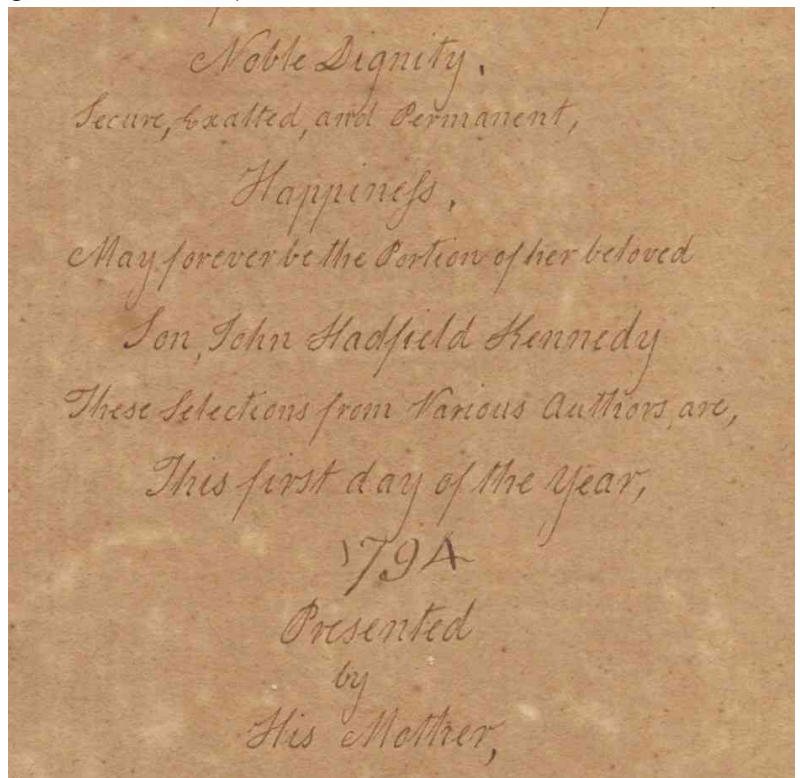 Noble Dignity.
Secure, Exalted, and Permanent,
Happineſs,
May forever be the Portion of her beloved
Son, John Hadfield Kennedy
These Selections from Various Authors, are,
This first day of the Year,
1794
Presented
by
His Mother,